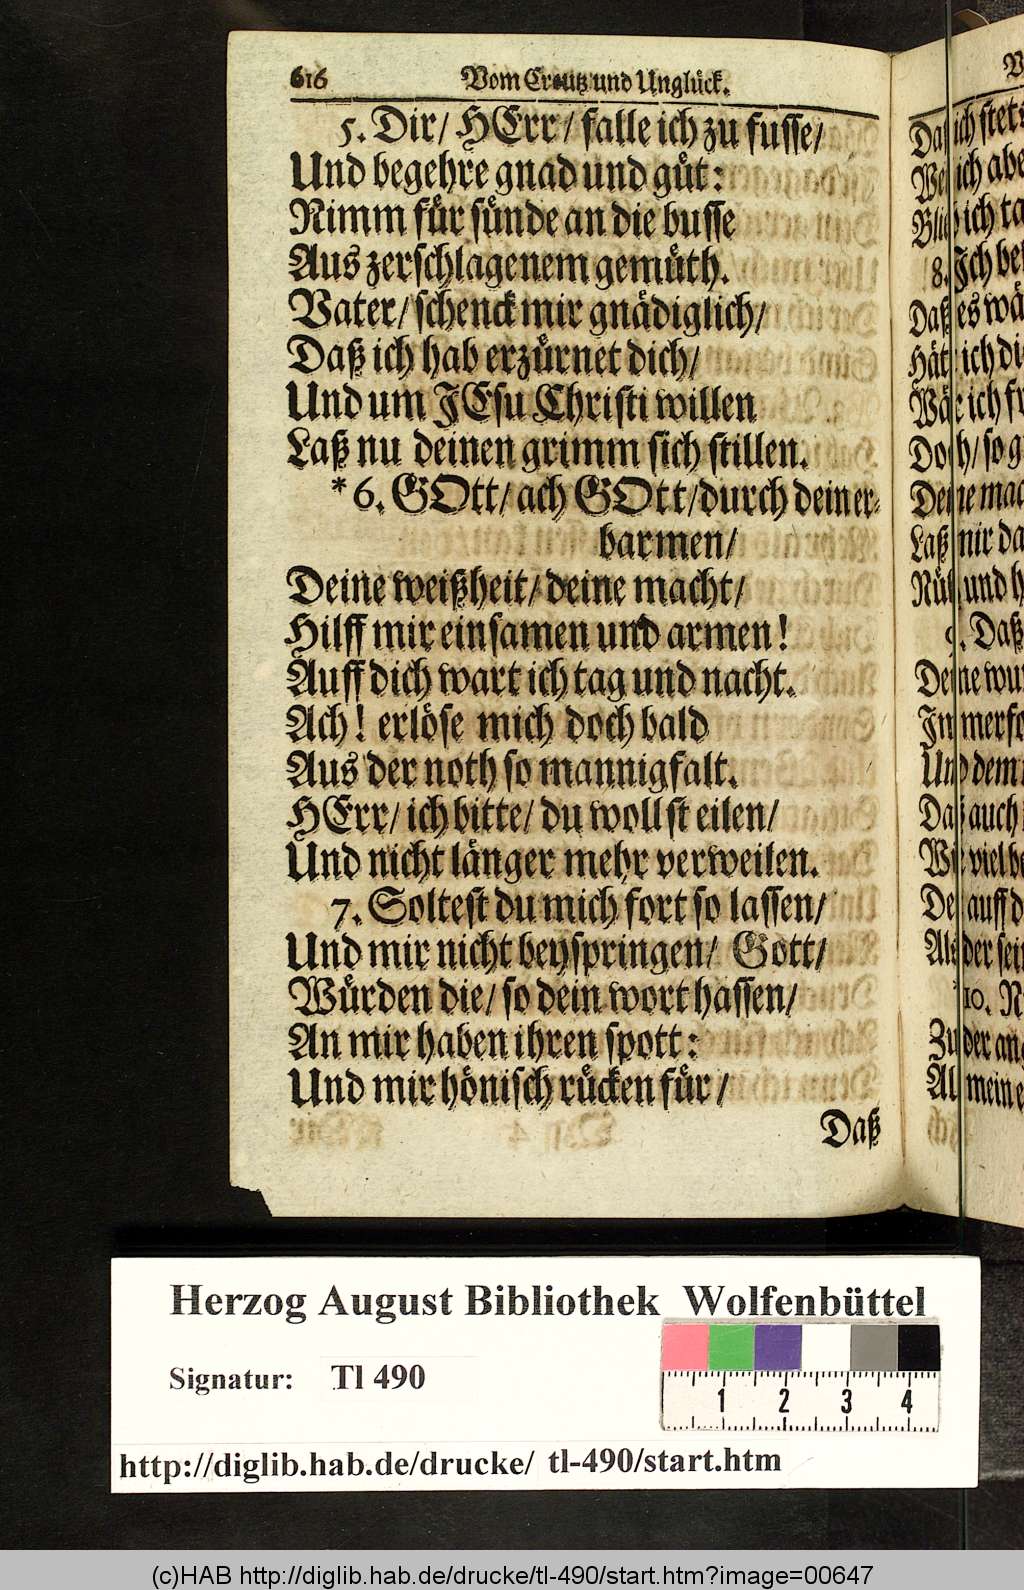 616 Vom Creutz und Unglück.
5. Dir/ HErr/ falle ich zu fusse/
Und begehre gnad und güt:
Nimm für sünde an die busse
Aus zerschlagenem gemüth.
Vater/ schenck mir gnädiglich/
Daß ich hab erzürnet dich/
Und um JEsu Christi willen
Laß nu deinen grimm sich stillen.
* 6. GOtt/ ach GOtt/ durch dein er-
barmen/
Deine weißheit/ deine macht/
Hilff mir einsamen und armen!
Auff dich wart ich tag und nacht.
Ach! erlöse mich doch bald
Aus der noth so mannigfalt.
HErr/ ich bitte/ du wollst eilen/
Und nicht länger mehr verweilen.
7. Soltest du mich fort so lassen/
Und mir nicht beyspringen/ Gott/
Würden die/ so dein wort hassen/
An mir haben ihren spott:
Und mir hönisch rücken für/
Daß
ich
ich abe
ich ta
8. Jch
Daß es wä
ich di
ich
Doch/ so g
Deine mac
Laß mir da
und
9. Daß
Deine wu
Und dem
Daß auch
Wie viel
auff d
Als der sei
10.
Zu der an
mein
Herzog August Bibliothek Wolfenbüttel
Signatur: Tl 490
1 2 3 4
http://diglib.hab.de/drucke/ tl-490/start.htm
(c)HAB http://diglib.hab.de/drucke/tl-490/start.htm?image=00647